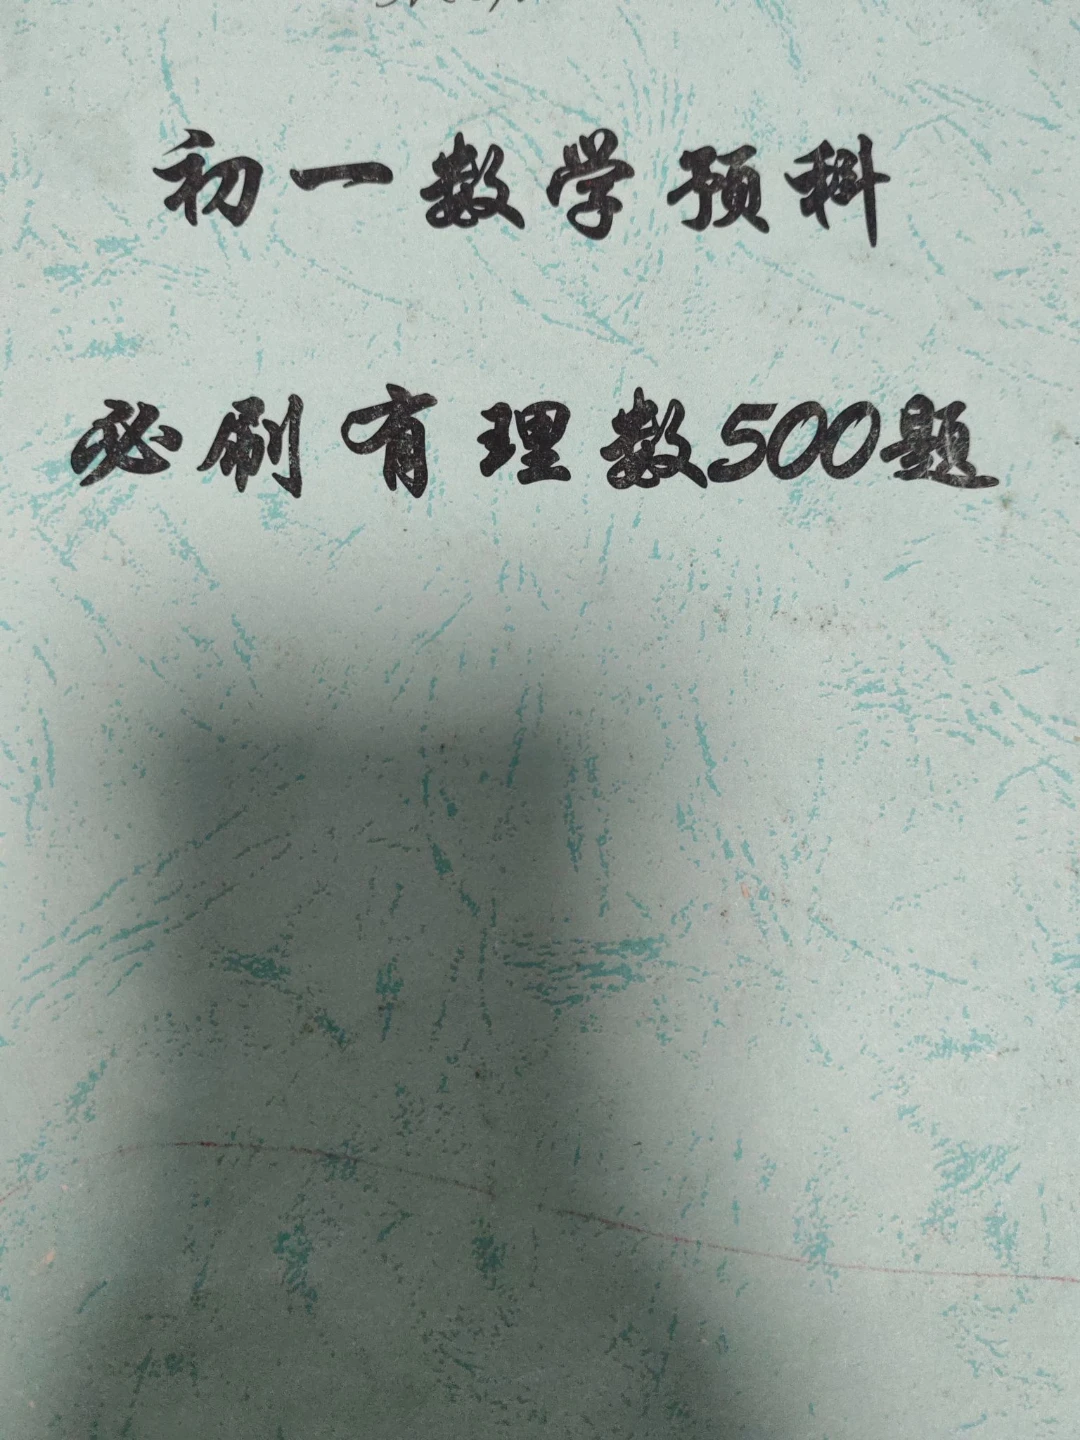 初一数学预科
必刷有理数500题